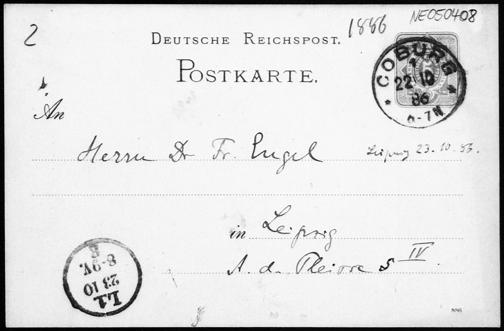 2
1886
NE050408
DEUTSCHE REICHSPOST.
POSTKARTE.
COBURG
1
22 10
86
6-7N
An
Herrn Dr Fr. Engel
Leipzig 23.10.86.
in Leipzig
A. d. Pleisse 5 IV
L.1
23 10
8-9V.